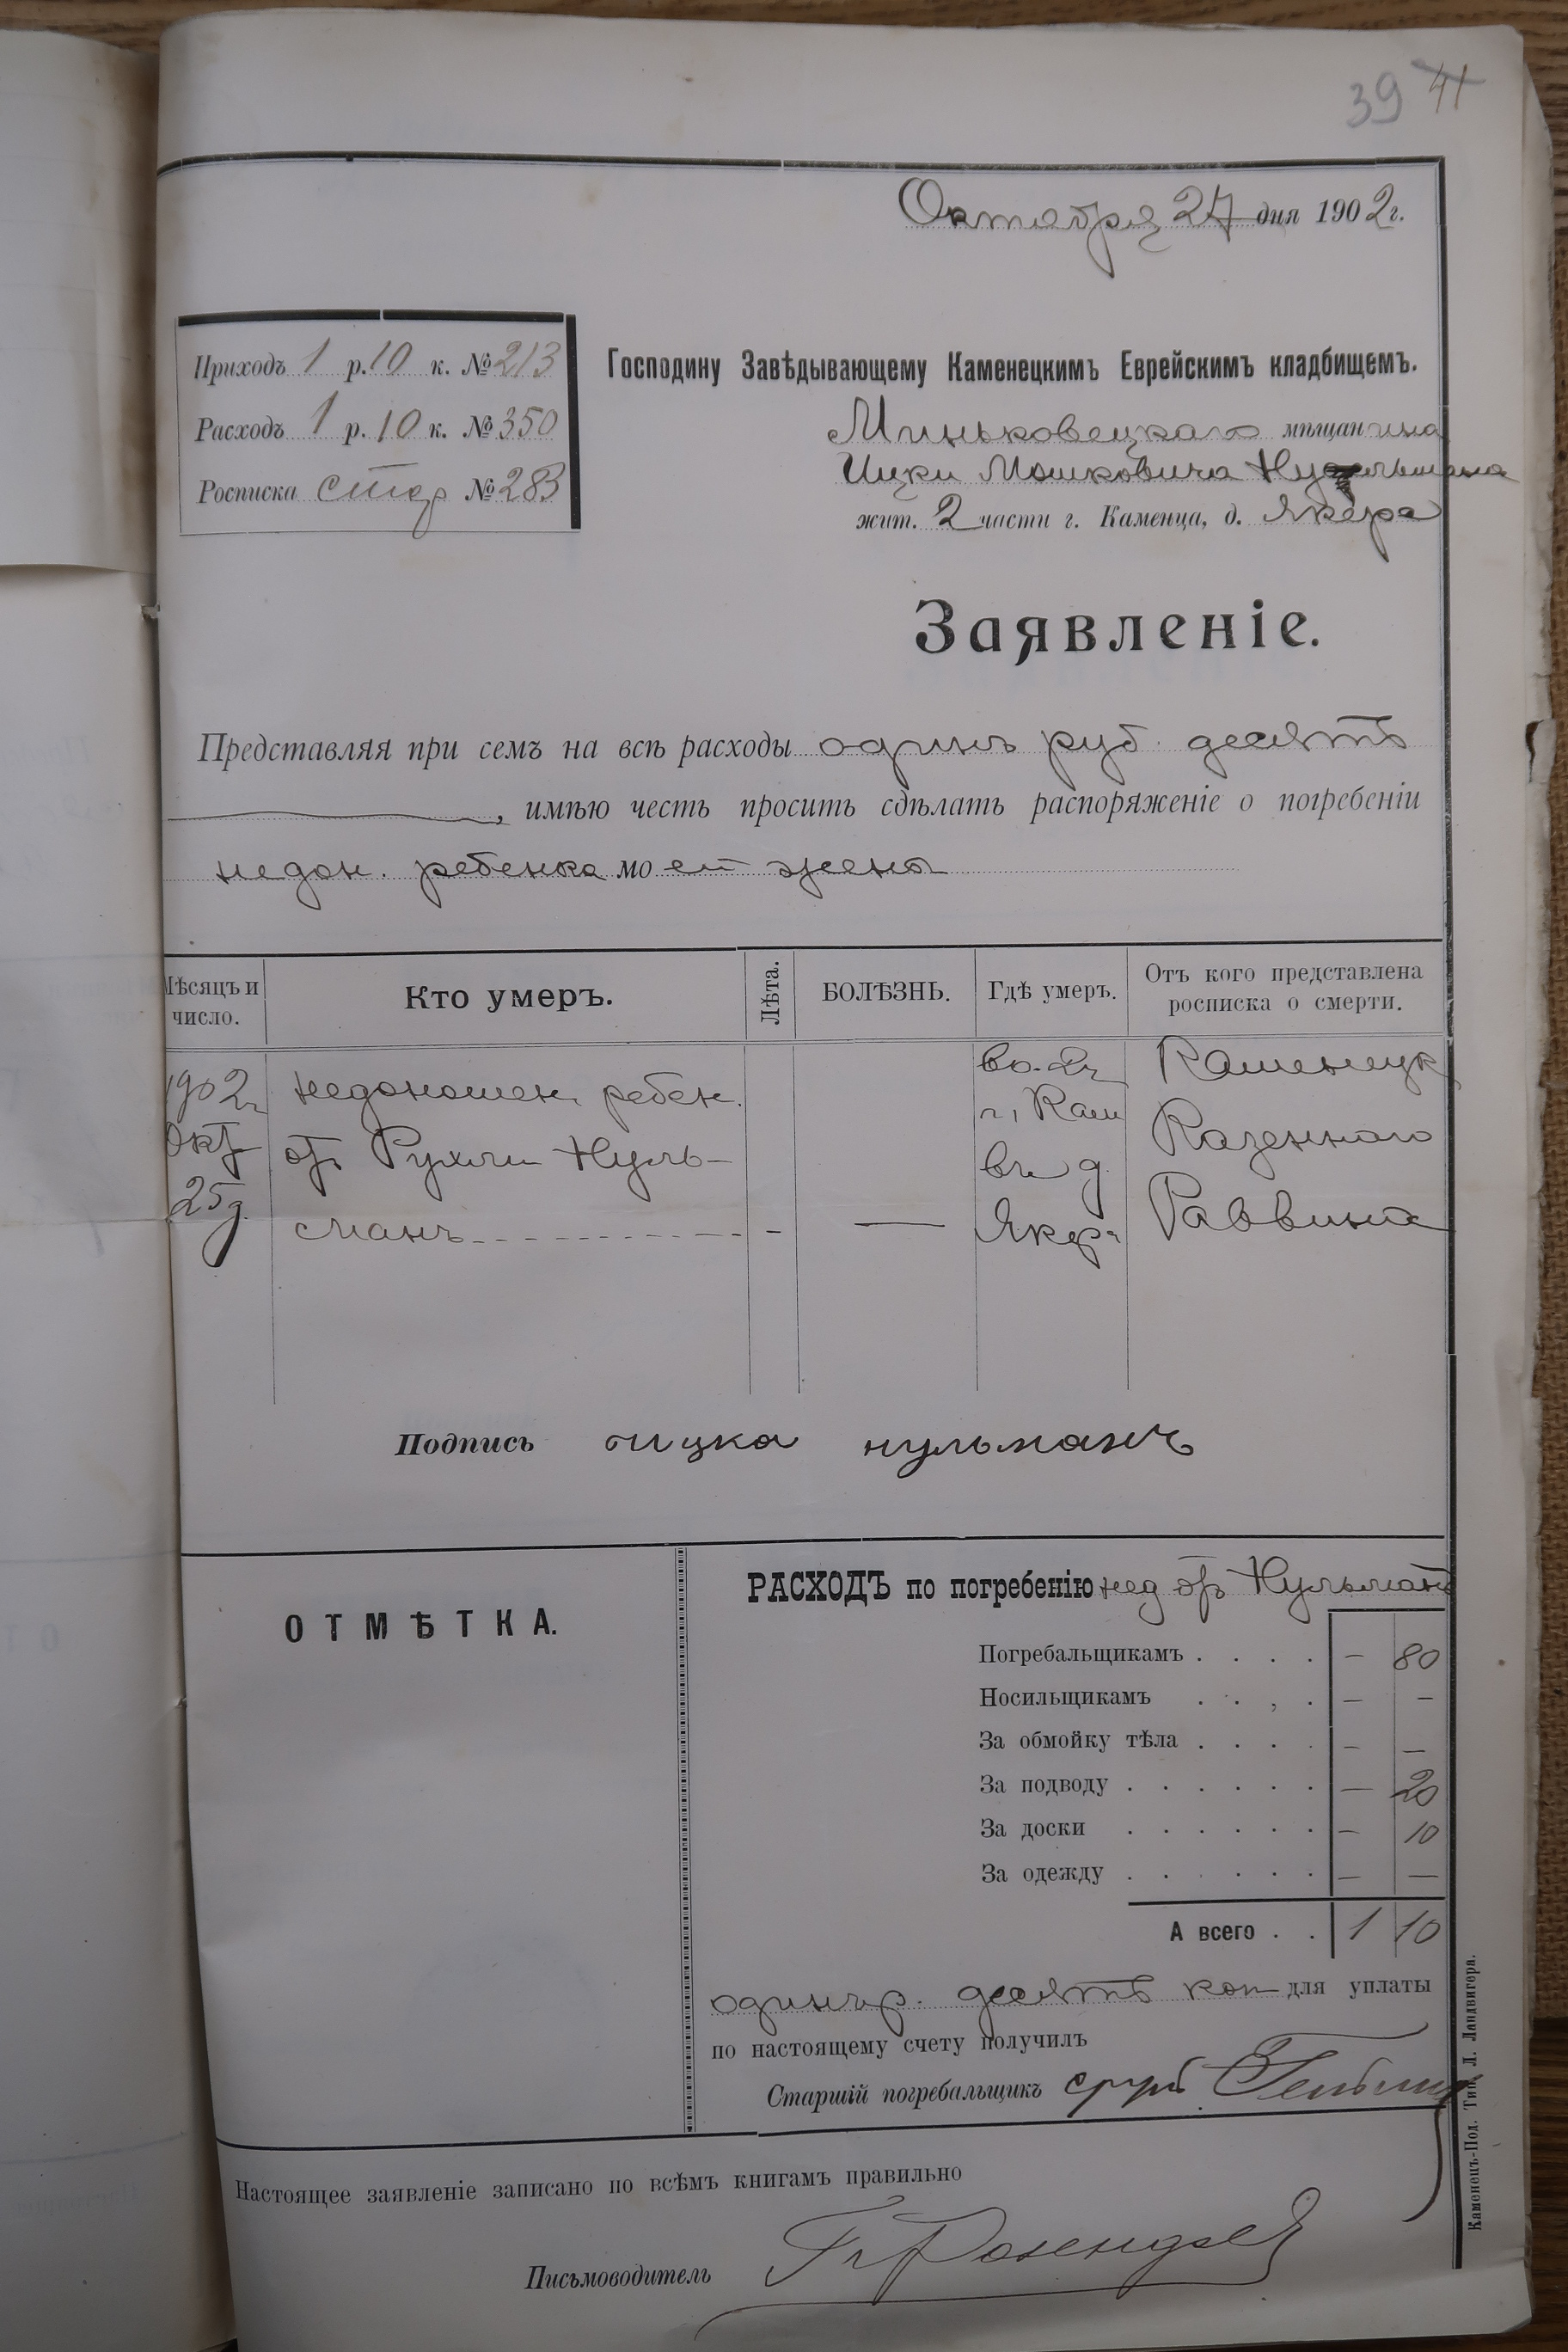 39 41
Октября 27 дня 1902 г.
Приходъ 1 р. 10 к. № 213
Расходъ 1 р. 10 к. № 350
Росписка № 283
Господину Завѣдывающему Каменецкимъ Еврейскимъ кладбищемъ.
Миньковецкаго мѣщанина
Ицки Мошковича
жит. 2 части г. Каменца, д. Якера
Заявленіе.
Представляя при семъ на всѣ расходы одинъ руб. десять
, имѣю честь просить сдѣлать распоряженіе о погребеніи
недон. ребенка моей жены
Мѣсяцъ и число.
Кто умеръ.
Лѣта.
БОЛѢЗНЬ.
Гдѣ умеръ.
Отъ кого представлена росписка о смерти.
1902 г.
Окт
25 д.
недоношен. ребен.
от Рухли Нуль-
манъ - -
во 2 ч
г. Кам
въ д.
Якера
Каменецк
Казеннаго
Раввина
Подпись ицка нульманъ
ОТМѢТКА.
РАСХОДЪ по погребенію нед от Нульманъ
Погребальщикамъ . . . . — 80
Носильщикамъ . . , . — —
За обмойку тѣла . . . . — —
За подводу . . . . . . — 20
За доски . . . . . . — 10
За одежду . . . . . . — —
А всего . . 1 10
одинъ р. десять коп для уплаты
по настоящему счету получилъ
Старшій погребальщикъ
Настоящее заявленіе записано по всѣмъ книгамъ правильно
Письмоводитель
Каменецъ-Под. Тип. Л. Ландвигера.